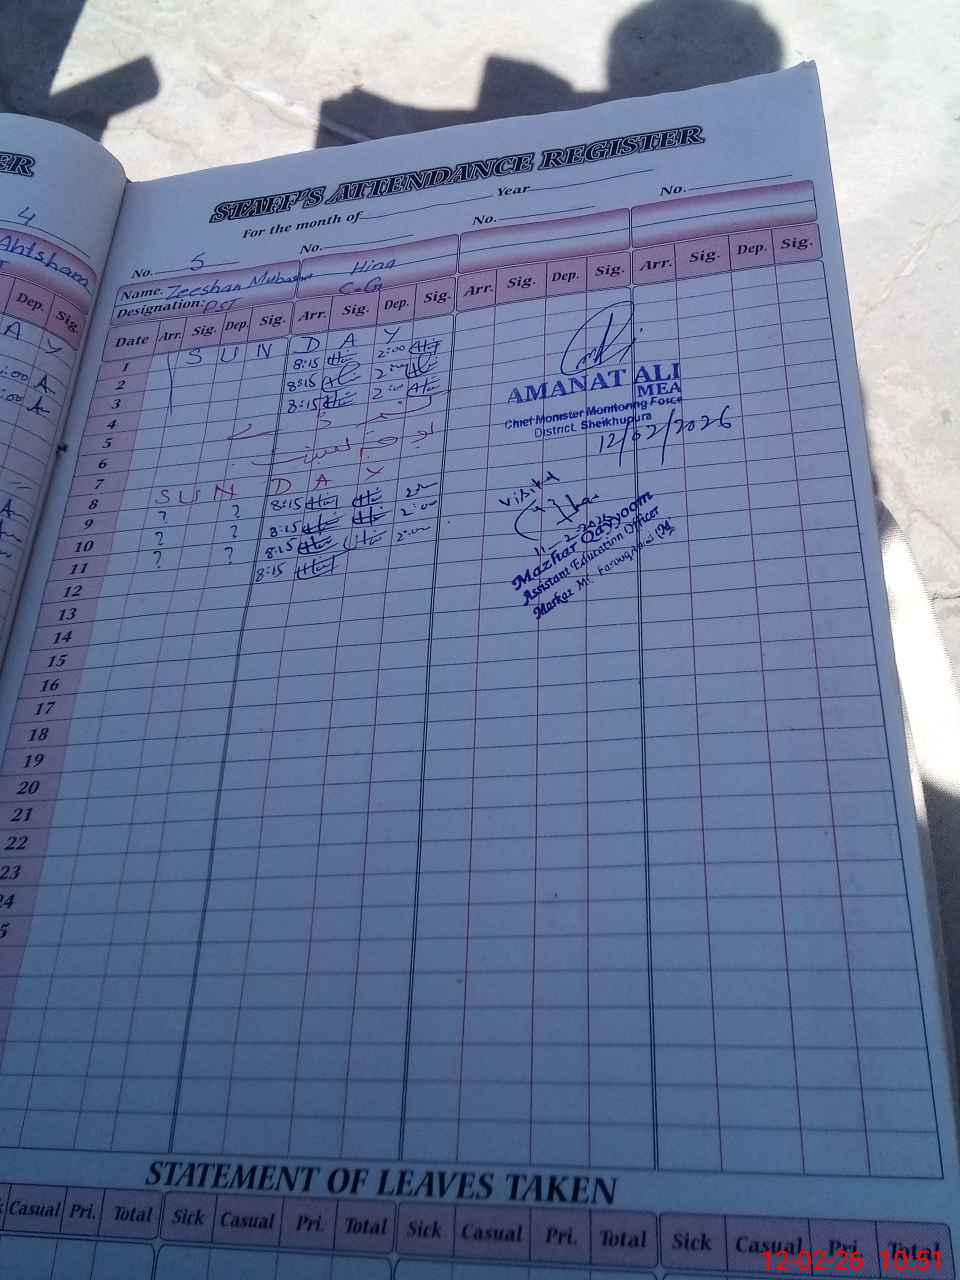 ER
STAFF'S ATTENDANCE REGISTER
For the month of Year
4
No. 5 No. No. No.
Ahtsham
Name. Zeeshan Mubashar Hina
Designation: PST C-G
Dep. Sig.
Date Arr. Sig. Dep. Sig. Arr. Sig. Dep. Sig. Arr. Sig. Dep. Sig. Arr. Sig. Dep. Sig.
A Y
1 S U N D A Y
2 8:15 2:00
3 8:15 2:00
4 8:15 2:00
5
6
7
8 S U N D A Y
9 ? ? 8:15
10 ? ? 8:15 2:00
11 ? ? 8:15 2:00
12 8:15
13
14
15
16
17
18
19
20
21
22
23
24
5
AMANAT ALI
MEA
Chief Monister Monitoring Force
District Sheikhupura
12/02/2026
Visited
11-2-2026
Mazhar Qayyoom
Assistant Education Officer
Markaz
STATEMENT OF LEAVES TAKEN
Casual Pri. Total Sick Casual Pri. Total Sick Casual Pri. Total Sick Casual Pri. Total
12-02-26 10:51